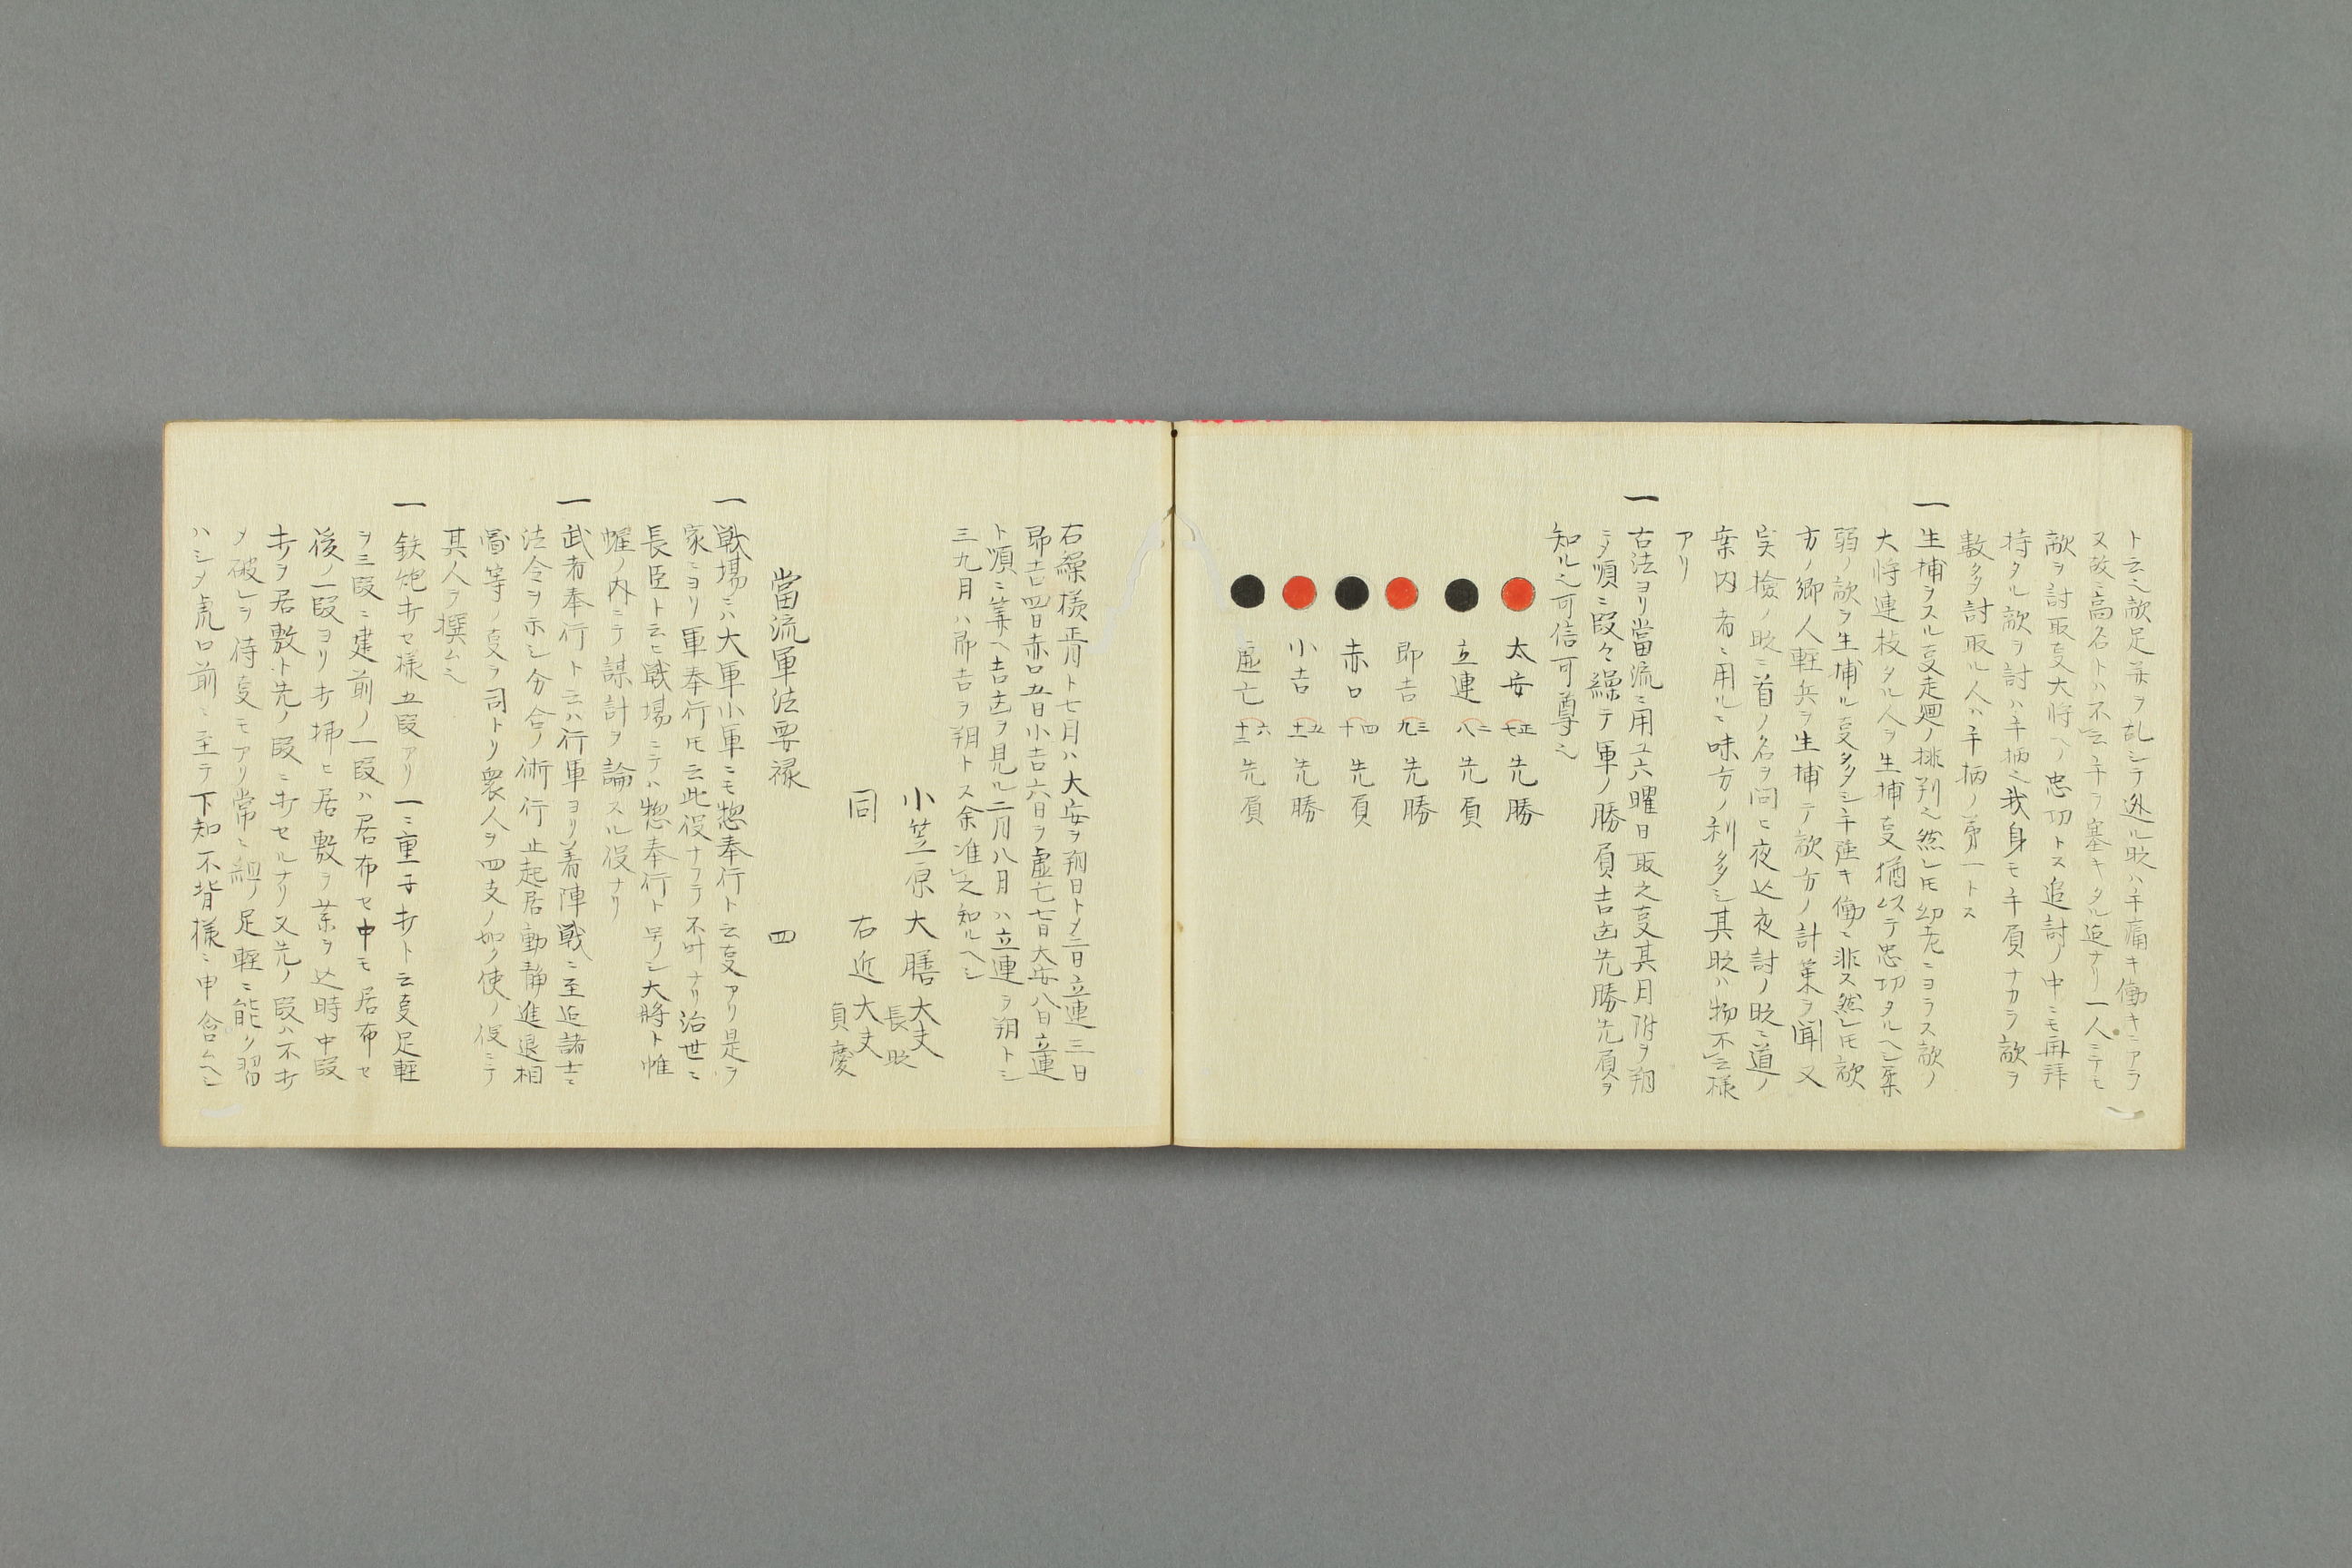 ト云之敵足並ヲ乱シテ迯ル時ハ手痛キ働キニアラ
又故ニ高名トハ不云手ヲ塞キタル迄ナリ一人ニテモ
敵ヲ討取事大将ヘノ忠功トス追討ノ中ニモ再拝
持タル敵ヲ討ハ手柄也我身モ手負ナカラ敵ヲ
数多討取ル人ハ手柄ノ第一トス
一生捕ヲスル事走廻ノ挑判也然レ𪜈幼老ニヨラス敵ノ
大将連枝タル人ヲ生捕事猶以テ忠功タルヘシ葉
弱ノ敵ヲ生捕ル事多シ手強キ働ニ非ス然レ𪜈敵
方ノ郷人軽兵ヲ生捕テ敵方ノ計策ヲ聞又
実検ノ時ニ首ノ名ヲ問ヒ夜込夜討ノ時ニ道ノ
案内者ニ用ルニ味方ノ利多シ其時ハ物不云様
アリ
一古法ヨリ當流ニ用ユ六曜日取之事其月附ヲ朔
ニメ順ニ段々繰テ軍ノ勝負吉凶先勝先負ヲ
知ル也可信可尊也
太安 正七 先勝
立連 二八 先負
即吉 三九 先勝
赤口 四十 先負
小吉 五十一 先勝
虚亡 六十二 先負
右繰様正月ト七月ハ大安ヲ朔日トメ二日立連三日
即吉四日赤口五日小吉六日ヲ虚亡七日大安八日立連
ト順ニ筭ヘ吉凶ヲ見ル二月八月ハ立連ヲ朔トシ
三九月ハ即吉ヲ朔トス余准之知ルヘシ
小笠原大膳大夫
長時
同 右近大夫
貞慶
當流軍法要禄 四
一戦場ニハ大軍小軍ニモ惣奉行ト云事アリ是ヲ
家ニヨリ軍奉行𪜈云此役ナクテ不叶ナリ治世ニ
長臣ト云ヒ戦場ニテハ惣奉行ト号シ大将ト帷
幄ノ内ニテ謀計ヲ論スル役ナリ
一武者奉行ト云ハ行軍ヨリ着陣戦ニ至迄諸士ニ
法令ヲ示シ分合ノ術行止起居動静進退相
圖等ノ事ヲ司トリ衆人ヲ四支ノ如ク使ノ役ニテ
其人ヲ撰ム也
一鉄炮打セ様五段アリ一ニ重子打ト云事足軽
ヲ三段ニ建前ノ一段ハ居布セ中モ居布セ
後ノ一段ヨリ打拂ヒ居敷ヲ薬ヲ込時中段
打ヲ居敷ト先ノ段ニ打セルナリ又先ノ段ハ不打
メ破レヲ待事モアリ常ニ組ノ足軽ニ能ク習
ハシメ虎口前ニ至テ下知不背様ニ申含ムヘシ